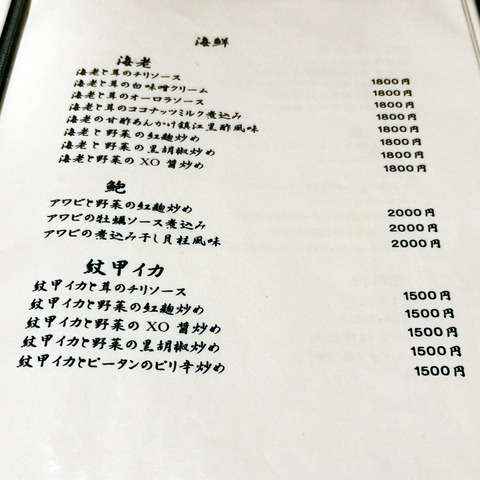 海鮮
海老
海老と茸のチリソース 1800円
海老と茸の白味噌クリーム 1800円
海老と茸のオーロラソース 1800円
海老と茸のココナッツミルク煮込み 1800円
海老の甘酢あんかけ鎮江黒酢風味 1800円
海老と野菜の紅麹炒め 1800円
海老と野菜の黒胡椒炒め 1800円
海老と野菜の XO 醤炒め 1800円
鮑
アワビと野菜の紅麹炒め 2000円
アワビの牡蠣ソース煮込み 2000円
アワビの煮込み干し貝柱風味 2000円
紋甲イカ
紋甲イカと茸のチリソース 1500円
紋甲イカと野菜の紅麹炒め 1500円
紋甲イカと野菜の XO 醤炒め 1500円
紋甲イカと野菜の黒胡椒炒め 1500円
紋甲イカとピータンのピリ辛炒め 1500円